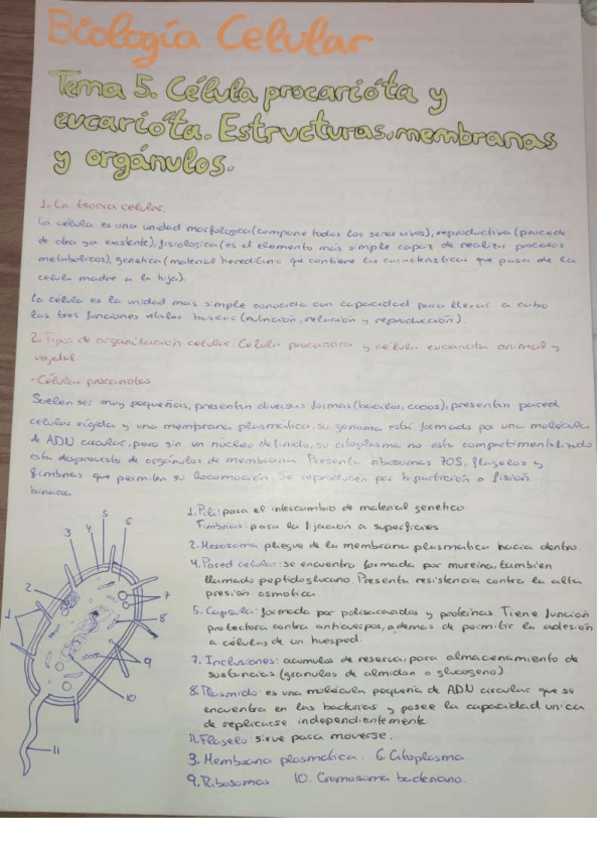 Biología Celular
Tema 5. Célula procarióta y
eucarióta. Estructuras, membranas
y orgánulos.
1. La teoría celular.
La célula es una unidad morfologica (compone todos los seres vivos), reproductiva (procede
de otra ya existente), fisiologica (es el elemento más simple capaz de realizar procesos
metabolicos), genetica (material hereditario que contiene las características que pasa de la
celula madre a la hija).
La célula es la unidad más simple conocida con capacidad para llevar a cabo
las tres funciones vitales basicas (nutrición, relación y reproducción).
2. Tipos de organización celular. Celula procariota y celula eucariota animal y
vegetal
- Células procariotas
Suelen ser muy pequeñas, presentan diversas formas (bacilos, cocos), presentan pared
celular rígida y una membrana plasmática, su genoma está formado por una molécula
de ADN circular, pero sin un núcleo definido, su citoplasma no esta compartimentalizado
esta desprovisto de orgánulos de membrana. Presenta ribosomas 70S, flagelos y
fimbrias que permiten su locomoción. Se reproducen por bipartición o fisión
binaria
1. Pili: para el intercambio de material genetico
Fimbrias: para la fijacion a superficies
2. Mesosoma pliegue de la membrana plasmatica hacia dentro.
4. Pared celular: se encuentra formada por mureina, tambien
llamado peptidoglucano. Presenta resistencia contra la alta
presión osmotica
5. Capsula: formada por polisacaridos y proteinas. Tiene función
protectora contra anticuerpos, ademas de permitir la adhesión
a células de un huesped.
7. Inclusiones: acumulos de reserva para almacenamiento de
sustancias (granulos de almidon o glucogeno)
8. Plasmido: es una molécula pequeña de ADN circular que se
encuentra en las bacterias y posee la capacidad unica
de replicarse independientemente
11. Flagelo: sirve para moverse.
3. Membrana plasmatica. 6. Citoplasma
9. Ribosomas. 10. Cromosoma bacteriano.
5
4
6
3
2
7
1
8
9
10
11